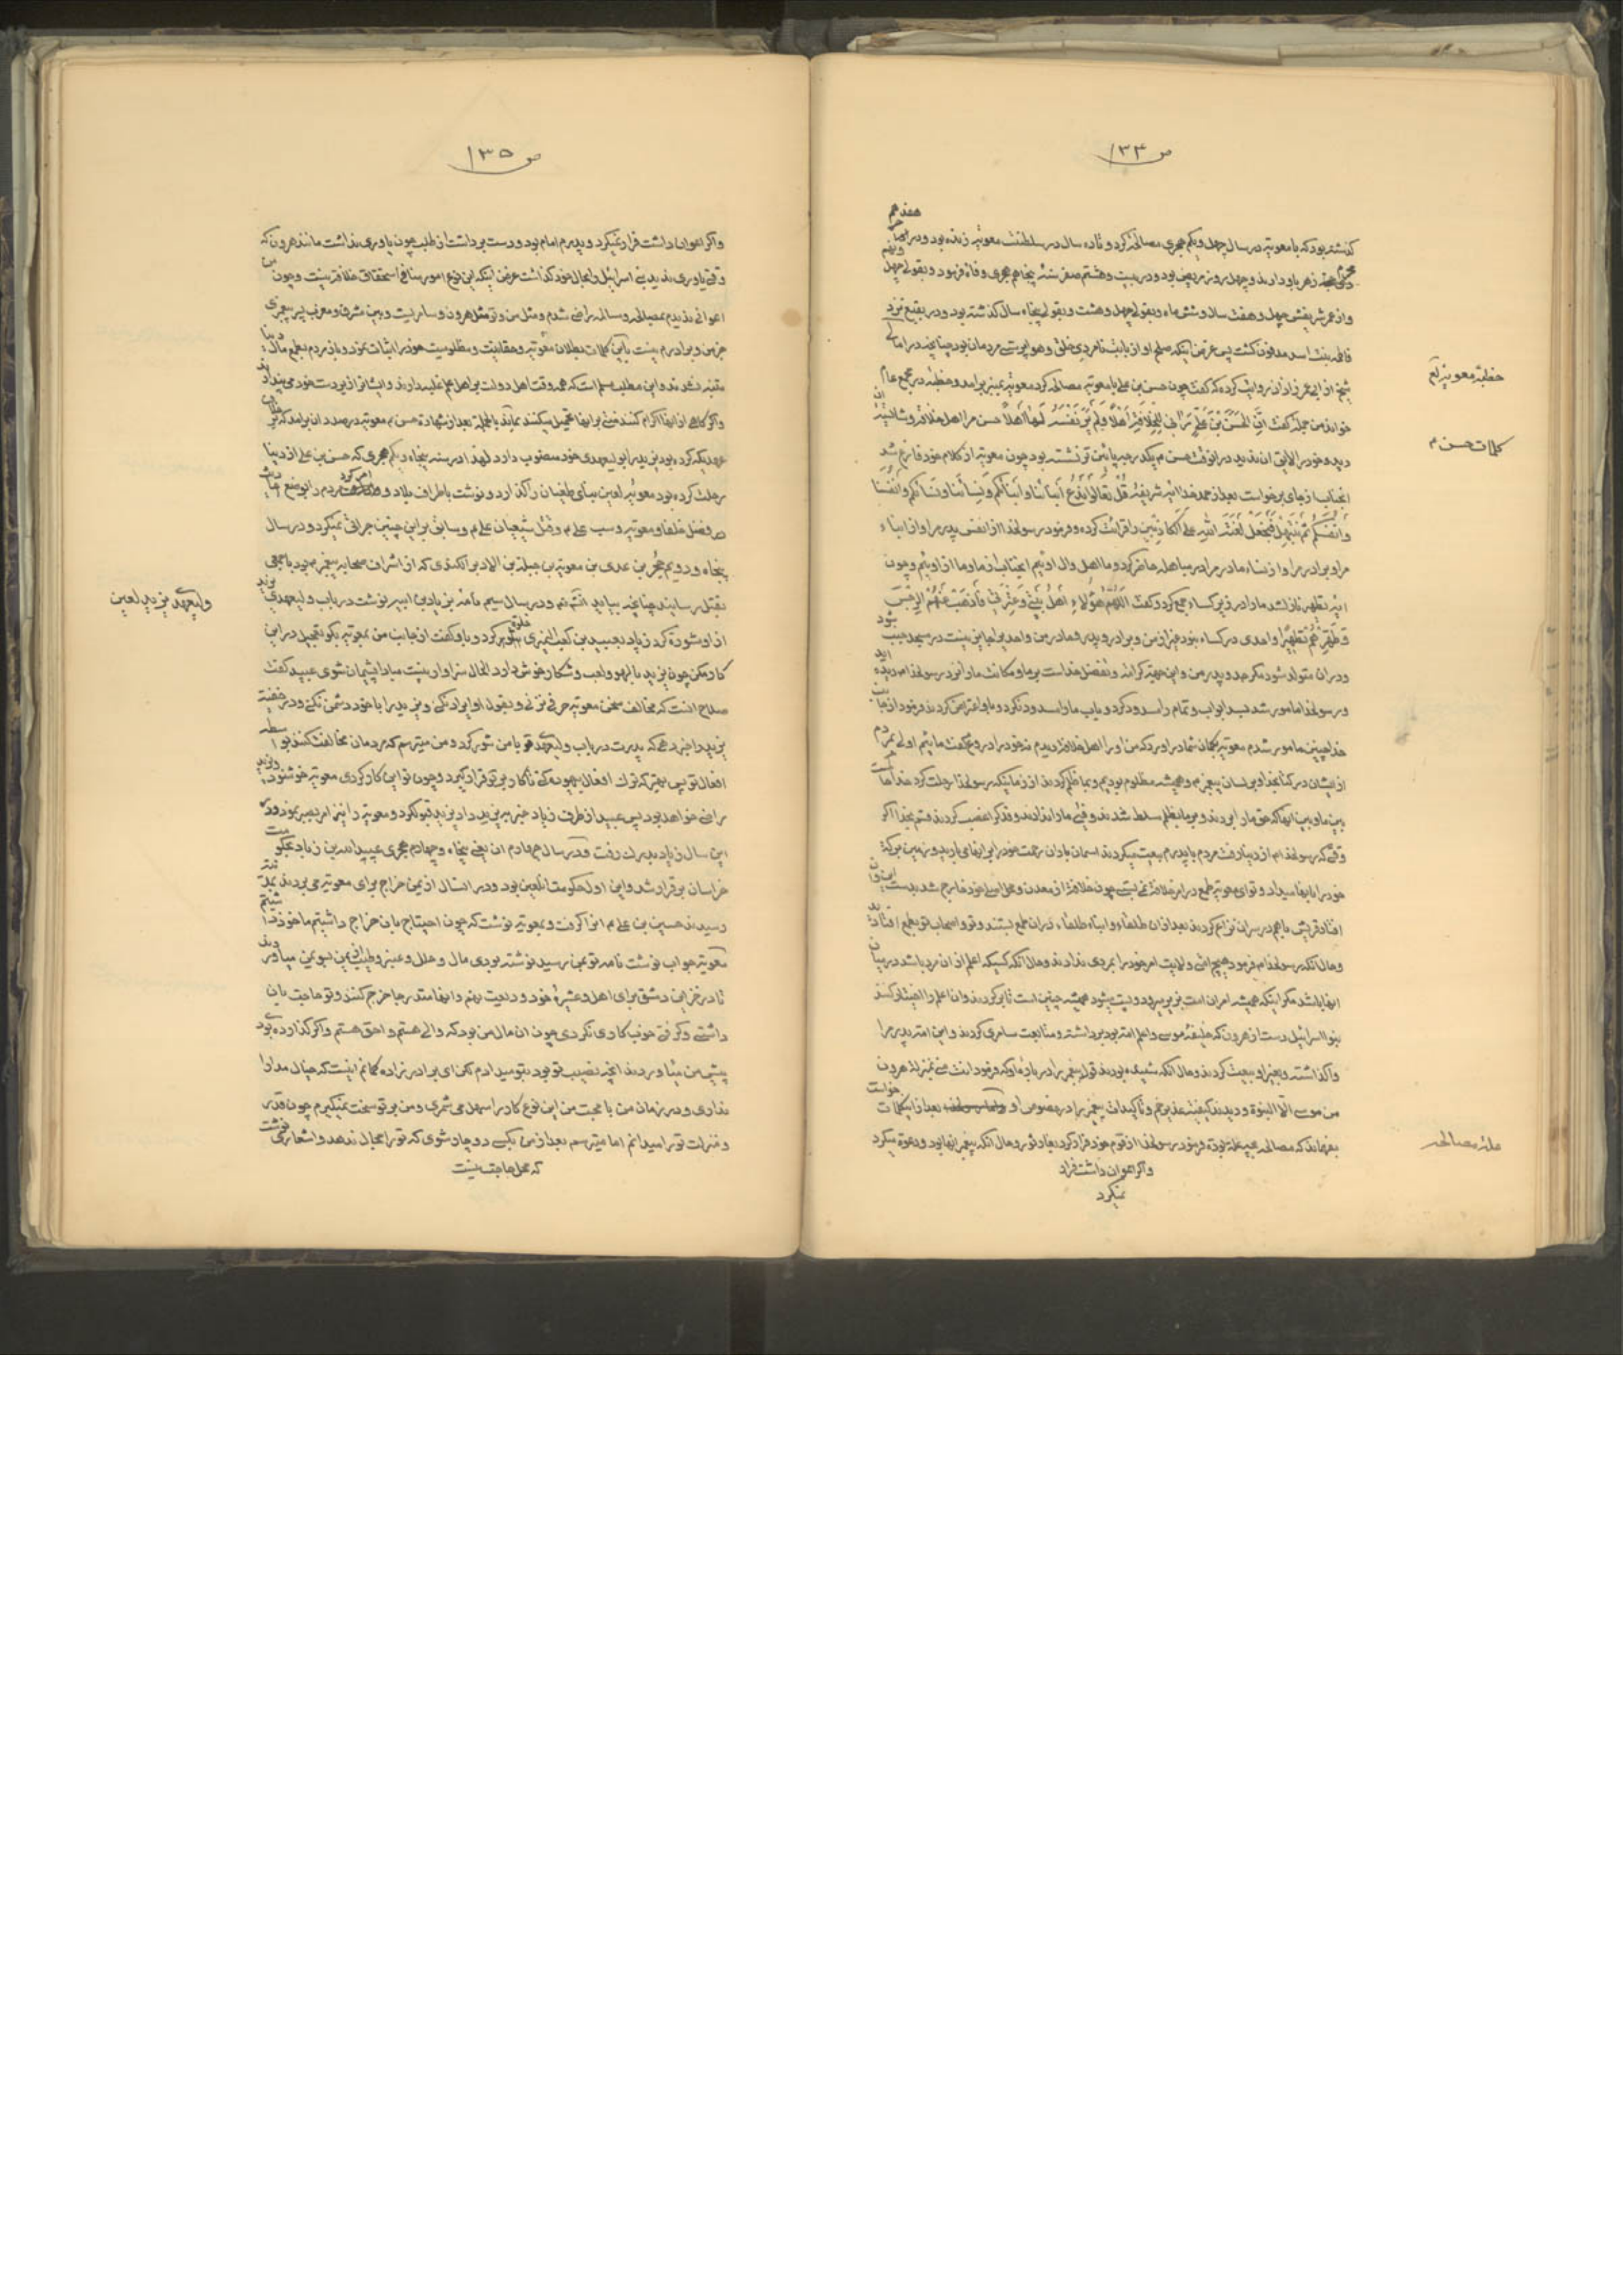 ص ۱۳۴
هفدهم
گذشته بود که با معویه در سال چهل و یکم هجری مصالحه کرد و تا ده سال در سلطنت معویه زنده بود و در
زهر باو دادند و چهل روز مریض بود و در بیست و هشتم صفر سنه پنجاهم هجری وفات فرمود و بقولی چهل
و از عمر شریفش چهل و هفت سال و شش ماه و بقولی چهل و هشت و بقولی پنجاه سال گذشته بود و در بقیع نزد
فاطمه بنت اسد مدفون گشت پس غرض اینکه صلح او از بابت نامردی خلق و هواپرستی مردمان بود چنانچه در امالی
خطبهٔ معویه
شیخ از ابی عمر زاذان روایت کرده که گفت چون حسن بن علی با معویه مصالحه کرد معویه بمنبر برآمد و خطبه در مجمع عام
خواند من جمله گفت اِنَّ الحَسَنَ بْنَ عَلِیٍّ رَاٰنی لِلخِلافَةِ اَهْلاً وَلَمْ یَرَ نَفْسَهُ لَها اَهْلاً حسن مرا اهل خلافت و شایسته
کلمات حسن ع
دید و خود را لایق آن ندید در آنوقت حسن ع یکدرجه پائین تر نشسته بود چون معویه از کلام خود فارغ شد
آنجناب از جای برخواست بعد از حمد خدا آیه شریفه قُلْ تَعالَوْا نَدْعُ اَبْنآئَنا وَاَبْنآئَکُمْ وَنِسآئَنا وَنِسآئَکُمْ وَاَنْفُسَنا
وَاَنْفُسَکُمْ ثُمَّ نَبْتَهِلْ فَنَجْعَلْ لَعْنَتَ اللهِ عَلَی الکاذِبینَ را قرائت کرده و فرمود رسولخدا از انفس پدر مرا و از ابناء
مرا و برادر مرا و از نساء مادر مرا در مباهله حاضر کرد و ما اهل و آل اوئیم آنجناب از ما و ما از اوئیم و چون
آیه تطهیر نازل شد ما را در زیر کساء جمع کرد و گفت اَللّهُمَّ هٰؤُلاءِ اَهْلُ بَیْتی وَعِتْرَتی فَاَذْهِبْ عَنْهُمُ الرِّجْسَ
وَطَهِّرْهُمْ تَطْهیراً و احدی در کساء نبود جز از من و برادر و پدر و مادر من و احدیرا جایز نیست در مسجد جنب شود
و در آن متولد شود مگر جد و پدر من و این جهت کرامت و تفضل خداست بر ما و مکانت ما را نزد رسولخدا م دیده اید
و رسولخدا مامور شد بسد ابواب و تمام را سدود کرد و باب ما را سدود نکرد و باو اعتراض کردند فرمود از جانب
خدا چنین مامور شدم معویه بگمان شما درآورد که من او را اهل خلافت دیدم نه خود را دروغ گفت مائیم اولی بمردم
از ایشان در کتابخدا و بر لسان پیغمبر م و همیشه مظلوم بودیم و بما ظلم کردند از زمانیکه رسولخدا رحلت کرد خدا حاکم است
بین ما و بین آنها که حق ما را بردند و بر ما بظلم مسلط شدند و فیٔ ما را ندادند و فدک را غصب کردند قسم بخدا اگر
وقتی که رسولخدا م از دنیا رفت مردم با پدرم بیعت میکردند آسمان باران رحمت خود را بر آنها می بارید و زمین برکت
خود را بآنها میداد و تو ای معویه طمع در امر خلافت نمی بستی چون خلافت از معدن و محل اصلی خود خارج شد بدست این و آن
افتاد قریش باهم در سر آن نزاع کردند بعد از آن طلقاء و ابناء طلقاء در آن طمع بستند و تو و اصحاب تو بطمع افتادند
و حال آنکه رسولخدا م فرمود هیچ امتی ولایت امر خود را بمردی ندادند و حال آنکه کسیکه اعلم از آن مرد باشد در میان
آنها باشد مگر اینکه همیشه امر آن امت بزیر میرود و پست میشود همیشه چنین است تا برگردند و آن اعلم را اختیار کنند
بنو اسرائیل دست از هرون که خلیفهٔ موسی و اعلم امت بود برداشته و متابعت سامری کردند و این امت پدر مرا
واگذاشته و بغیر او بیعت کردند و حال آنکه شنیده بودند قول پیغمبر را دربارهٔ او که فرمود انت منی بمنزلة هرون
من موسی الّا النبوّة و دیدند کیفیت غدیر خم و تاکیدات پیغمبر را در خصوص او بعد از این کلمات خواست
علت مصالحه
بفهماند که مصالحه بچه علت بوده فرمود رسولخدا از قوم خود فرار کرد بغار ثور و حال آنکه پیغمبر آنها بود و دعوت میکرد
و اگر اعوان داشت فرار
نمیکرد
ص ۱۳۵
و اگر اعوان داشت فرار نمیکرد و پدرم امام بود و دست برداشت از طلب چون یاوری نداشت مانند هرون که
وقتی یاوری ندید بنی اسرائیل را بحال خود گذاشت غرض اینکه این نوع امور منافی استحقاق خلافت نیست و چون من
اعوانی ندیدم بمصالحه و مسالمه راضی شدم و مثل من و تو مثل هرون و سامریست و بین مشرق و مغرب پسر پیغمبری
جز من و برادرم نیست باین کلمات بطلان معویه و حقانیت و مظلومیت خود را اثبات نمود و باز مردم بطمع مال دنیا
متنبه نشدند و این مطلب مسلم است که همه وقت اهل دولت بر اهل علم غلبه دارند و ایشانرا زیردست خود می پندارند
و اگر گاهی از آنها اکرام کنند منتی بر آنها تحمیل میکنند بالجمله بعد از شهادت حسن ع معویه در صدد آن برآمد که بر خلاف
عهدیکه کرده بود یزید را بولیعهدی خود منصوب دارد لهذا در سنه پنجاه و یکم هجری که حسن بن علی از دنیا
رحلت کرده بود معویه لعین بنای طغیان را گذارد و نوشت باطراف بلاد و امر کرد مردم را بوضع احادیث
در فضل خلفا و معویه و سب علی ع و قتل شیعیان علی ع و سابق بر این چنین جرأتی نمیکرد و در سال
پنجاه و دویم حُجْر بن عدی بن معویة بن جبلة بن الادبر الکندی که از اشراف صحابه پیغمبر م بود با جمعی
ولیعهدی یزید لعین
بقتل رسانیدند چنانچه بیاید انشاءالله و در سال سیم نامهٔ بزیاد بن ابیه نوشت در باب ولیعهدی یزید
از او مشورت کرد زیاد بعبید بن کعب النمیری مشورت کرد و باو گفت از جانب من بمعویه بگو تعجیل در این
کار مکن چون یزید بالهو و لعب و شکار خوش دارد الحال سزاوار نیست مبادا پشیمان شوی عبید گفت
صلاح آنست که مخالف سخن معویه حرفی نزنی و بقول او ایراد نکنی و یزید را با خود دشمن نکنی و در خفیه
یزید را خبر دهی که پدرت در باب ولیعهدی تو با من شور کرد و من میترسم که مردمان مخالفت کنند بواسطه
افعال تو پس بهتر که ترک افعال بیهوده کنی تا کار بر تو قرار گیرد و چون تو این کار کردی معویه خوشنود و یزید
راضی خواهد بود پس عبید از طرف زیاد خبر به یزید داد یزید قبول کرد و معویه را نیز امر بصبر نمود و در
این سال زیاد بدرک رفت و در سال چهارم آن یعنی پنجاه و چهارم هجری عبیدالله بن زیاد بحکومت
خراسان برقرار شد و این اول حکومت آن لعین بود و در آنسال از یمن خراج برای معویه می بردند بمدینه
رسیدند حسین بن علی ع آنرا گرفت و بمعویه نوشت که چون احتیاج باین خراج داشتیم ماخوذ داشتیم
معویه جواب نوشت نامه تو بمن رسید نوشته بودی مال و حلل و عنبر و طیب از یمن بسوی من میآورند
تا در خزاین دمشق برای اهل و عشیرهٔ خود ودیعت نهم و آنها متدرجا خرج کنند و تو حاجت بآن
داشتی و گرفتی خوب کاری نکردی چون آن مال من بود که والی هستم و احق هستم و اگر گذارده بودی
پیش من میآوردند آنچه نصیب تو بود بتو میدادم لکن ای برادرزاده گمانم اینست که خیال مدارا
نداری و در زمان من با محبت من این نوع کار را سهل می شمری و من بر تو سخت نمیگیرم چون قدر
و منزلت تو را میدانم اما میترسم بعد از من بکسی دوچار شوی که تو را مجال ندهد و اشعاری نوشت
که محل حاجت نیست